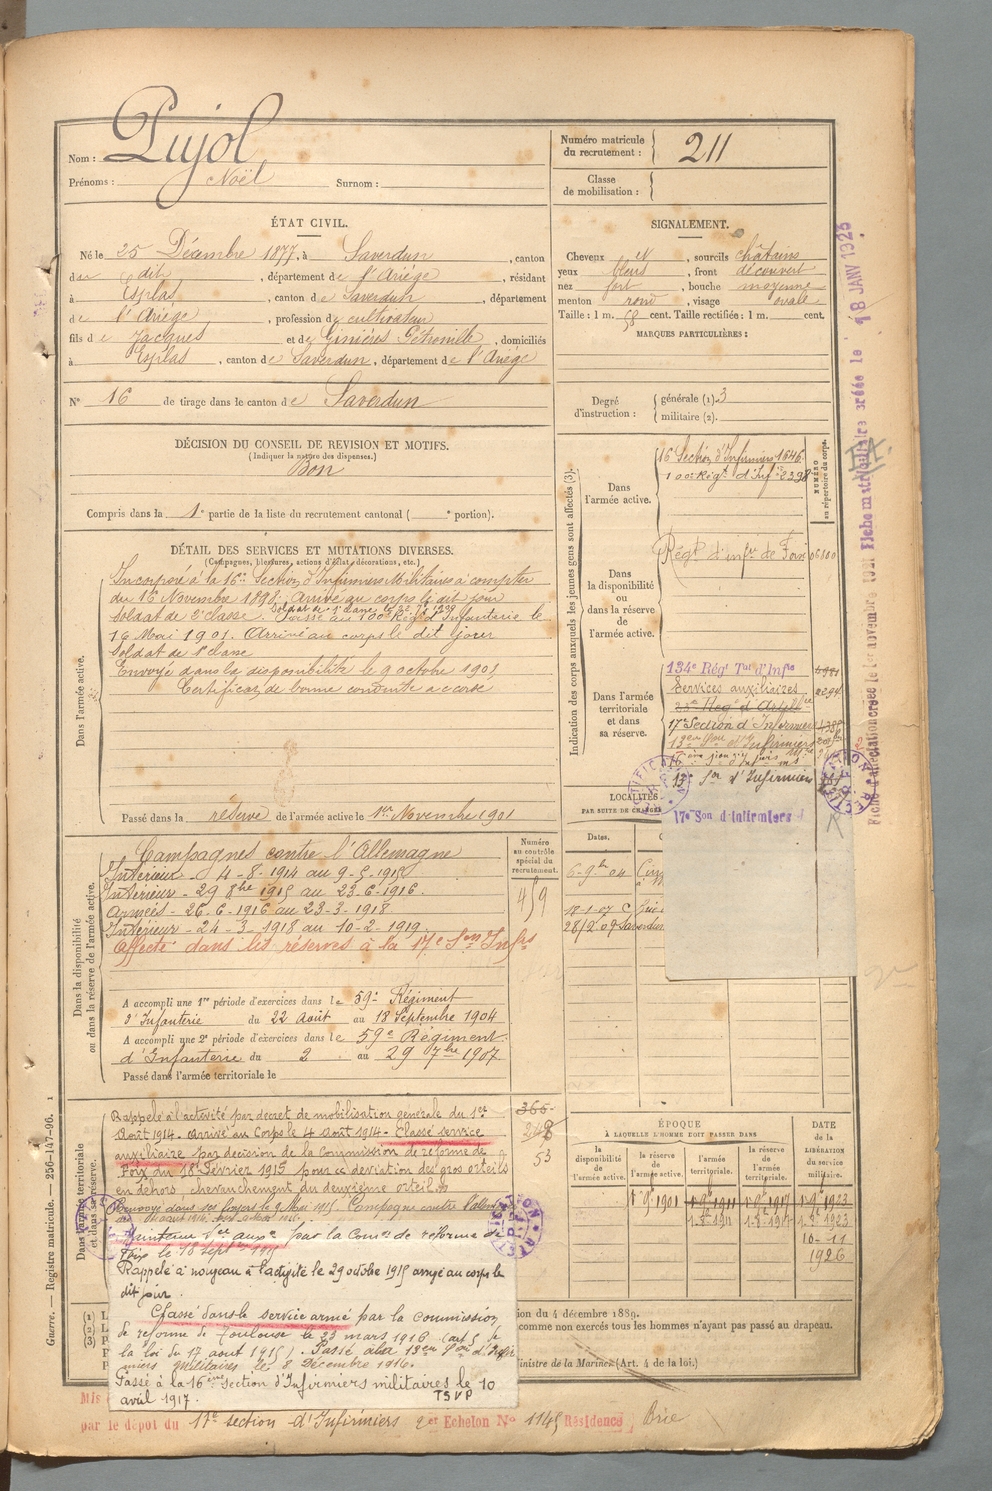 Nom : Pujol,
Prénoms : Noël Surnom :
Numéro matricule du recrutement : 211
Classe de mobilisation :
ÉTAT CIVIL.
Né le 25 Décembre 1877, à Saverdun, canton
du dit, département de l'Ariège, résidant
à Esplas, canton de Saverdun, département
de l'Ariège, profession de cultivateur
fils de Jacques et de Giniéres Pétronille, domiciliés
à Esplas, canton de Saverdun, département de l'Ariège
N° 16 de tirage dans le canton de Saverdun
SIGNALEMENT.
Cheveux et, sourcils châtains
yeux bleus, front découvert
nez fort, bouche moyenne
menton rond, visage ovale
Taille : 1 m. 58 cent. Taille rectifiée : 1 m. cent.
MARQUES PARTICULIÈRES :
Degré d'instruction : générale (1). 3
militaire (2).
DÉCISION DU CONSEIL DE REVISION ET MOTIFS.
(Indiquer la nature des dispenses.)
Bon
Compris dans la 1e partie de la liste du recrutement cantonal ( e portion).
DÉTAIL DES SERVICES ET MUTATIONS DIVERSES.
(Campagnes, blessures, actions d'éclat, décorations, etc.)
Dans l'armée active.
Incorporé à la 16e Section d'Infirmiers Militaires à compter
du 16 Novembre 1898. Arrivé au corps le dit jour
soldat de 2e classe. Soldat de 1e classe le
Passé au 100e Régt d'Infanterie le
16 Mai 1901. Arrivé au corps le dit jour
Soldat de 1e classe
Envoyé dans la disponibilité le 9 octobre 1901
Certificat de bonne conduite accordé
Passé dans la réserve de l'armée active le 1er Novembre 1901
Indication des corps auxquels les jeunes gens sont affectés (3).
NUMÉRO au répertoire du corps.
Dans l'armée active.
16e Section d'Infirmiers 1646
100e Régt d'Infie 2398
Dans la disponibilité ou dans la réserve de l'armée active.
Régt d'infie de Foix
Dans l'armée territoriale et dans sa réserve.
134e Régt Tal d'Infie
Services auxiliaires
17e Section d'Infirmiers
13e Son d'Infirmiers
17e Son d'Infirmiers
LOCALITÉS
PAR SUITE DE CHANGE
Dates.
6-9bre 04
18-1-07
28/2.09 Saverdun
Dans la disponibilité ou dans la réserve de l'armée active.
Numéro au contrôle spécial du recrutement.
459
Campagnes contre l'Allemagne
Intérieur - 4-8-1914 au 9-5-1915
Intérieur - 29 8bre 1915 au 23-6-1916.
Armées - 26-6-1916 au 23-3-1918
Intérieur - 24-3-1918 au 10-2-1919.
Affecté dans les réserves à la 17e Son Infrs
A accompli une 1re période d'exercices dans le 59e Régiment
d'Infanterie du 22 Août au 18 Septembre 1904
A accompli une 2e période d'exercices dans le 59e Régiment
d'Infanterie du 2 au 29 7bre 1907.
Passé dans l'armée territoriale le
Dans l'armée territoriale et dans sa réserve.
365
248
53
Rappelé à l'activité par décret de mobilisation générale du 1er
Août 1914. Arrivé au Corps le 4 Août 1914. Classé service
auxiliaire par décision de la Commission de réforme de
Foix du 18 Février 1915 pour « déviation des gros orteils
en dehors, chevauchement du deuxième orteil. »
Renvoyé dans ses foyers le 9 Mai 1915. Campagne contre l'allem
Maintenu Sce auxre par la Comon de réforme de
Foix le 18 septre 1915
Rappelé à nouveau à l'activité le 29 octobre 1915 arrivé au corps le
dit jour.
Classé dans le service armé par la commission
de réforme de Toulouse le 23 mars 1916 (art 5 de
la loi du 17 aout 1915). Passé à la 13e Son d'Infir
miers militaires le 8 Décembre 1916.
Passé à la 16ème section d'Infirmiers militaires le 10
avril 1917. TSVP
ÉPOQUE
À LAQUELLE L'HOMME DOIT PASSER DANS
la disponibilité de l'armée active.
la réserve de l'armée active.
l'armée territoriale.
la réserve de l'armée territoriale.
DATE de la LIBÉRATION du service militaire.
1er 9bre 1901
1-9bre 1911
1-9bre 1917
1-9bre 1923
10-11
1926
(1) L
(2)
(3)
ion du 4 décembre 1889.
comme non exercés tous les hommes n'ayant pas passé au drapeau.
inistre de la Marine. (Art. 4 de la loi.)
Mis
par le dépôt du 17e section d'Infirmiers Echelon N° 1145 Résidence Brie
Guerre. — Registre matricule. — 256-147-96. 1
Fiche d'affectation créée le 1er novembre 1921 Fiche matriculaire créée le 18 JANV 1923